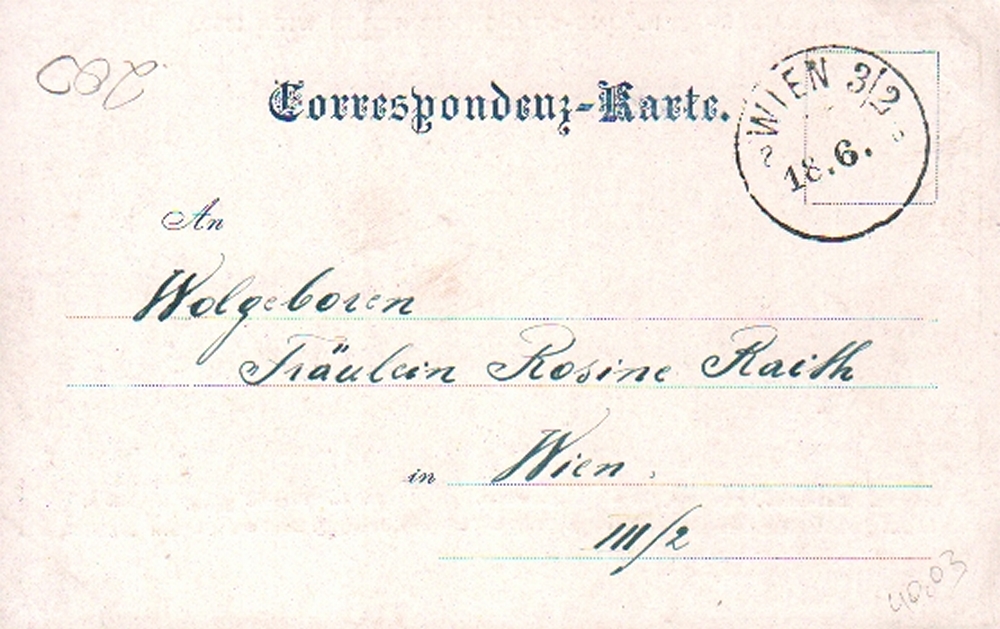 200
Correspondenz-Karte.
WIEN 3/2
18.6.
An
Wolgeboren
Fräulein Rosine Raith
in Wien,
III/2
40,03